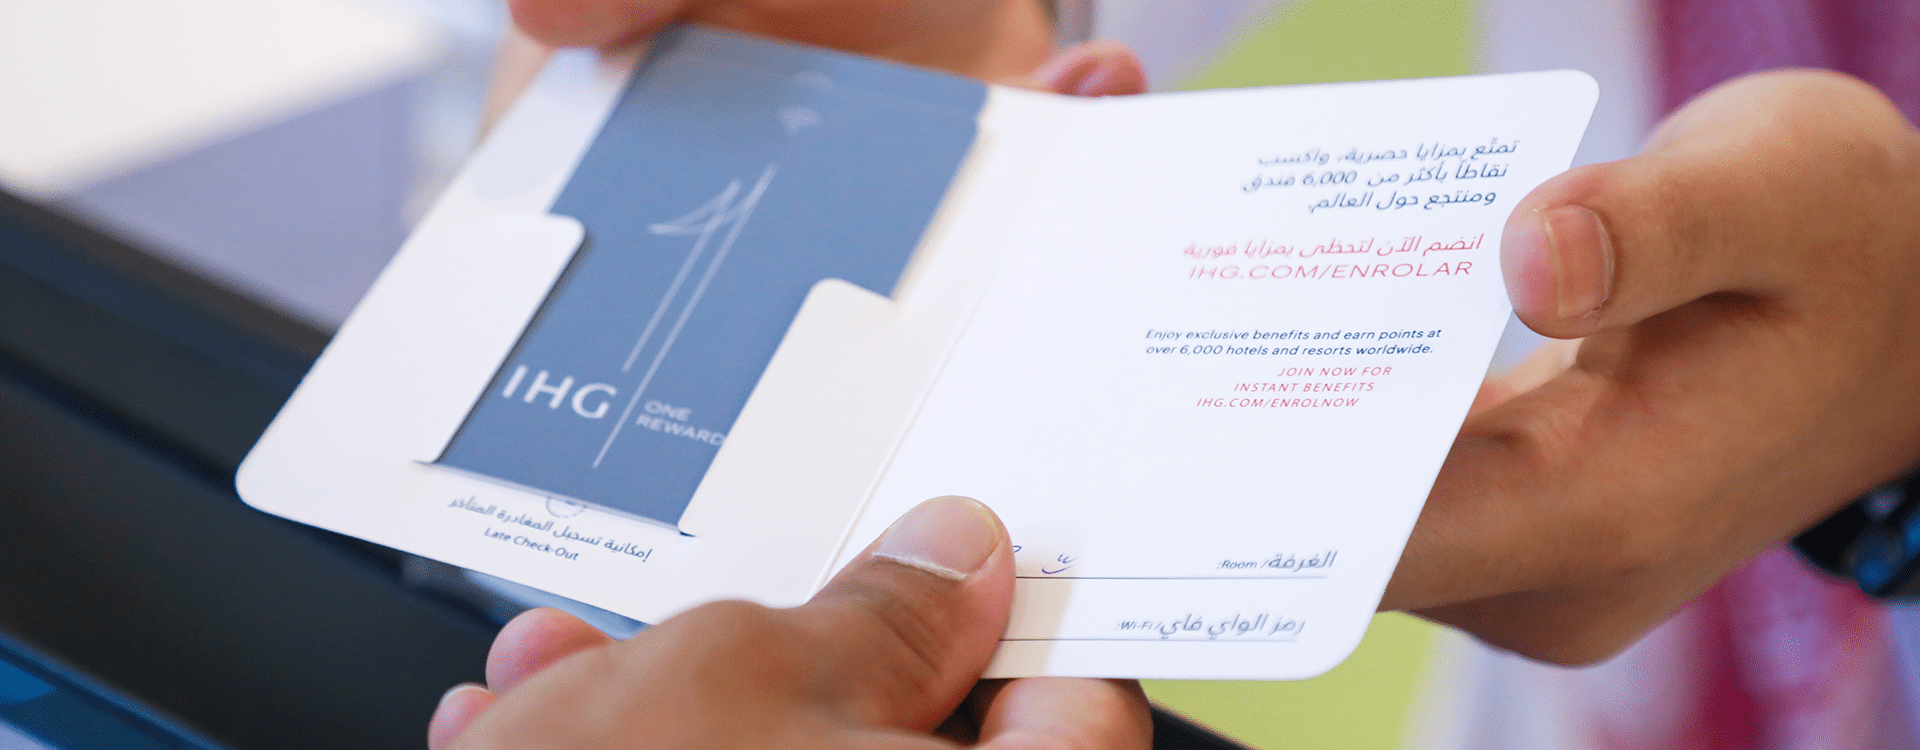 IHG
ONE
REWARD
إمكانية تسجيل المغادرة المتأخر
Late Check-Out
تمتّع بمزايا حصرية، واكسب
نقاطاً بأكثر من 6,000 فندق
ومنتجع حول العالم.
انضم الآن لتحظى بمزايا فورية
IHG.COM/ENROLAR
Enjoy exclusive benefits and earn points at
over 6,000 hotels and resorts worldwide.
JOIN NOW FOR
INSTANT BENEFITS
IHG.COM/ENROLNOW
الغرفة/ Room:
رمز الواي فاي/ Wi-Fi: